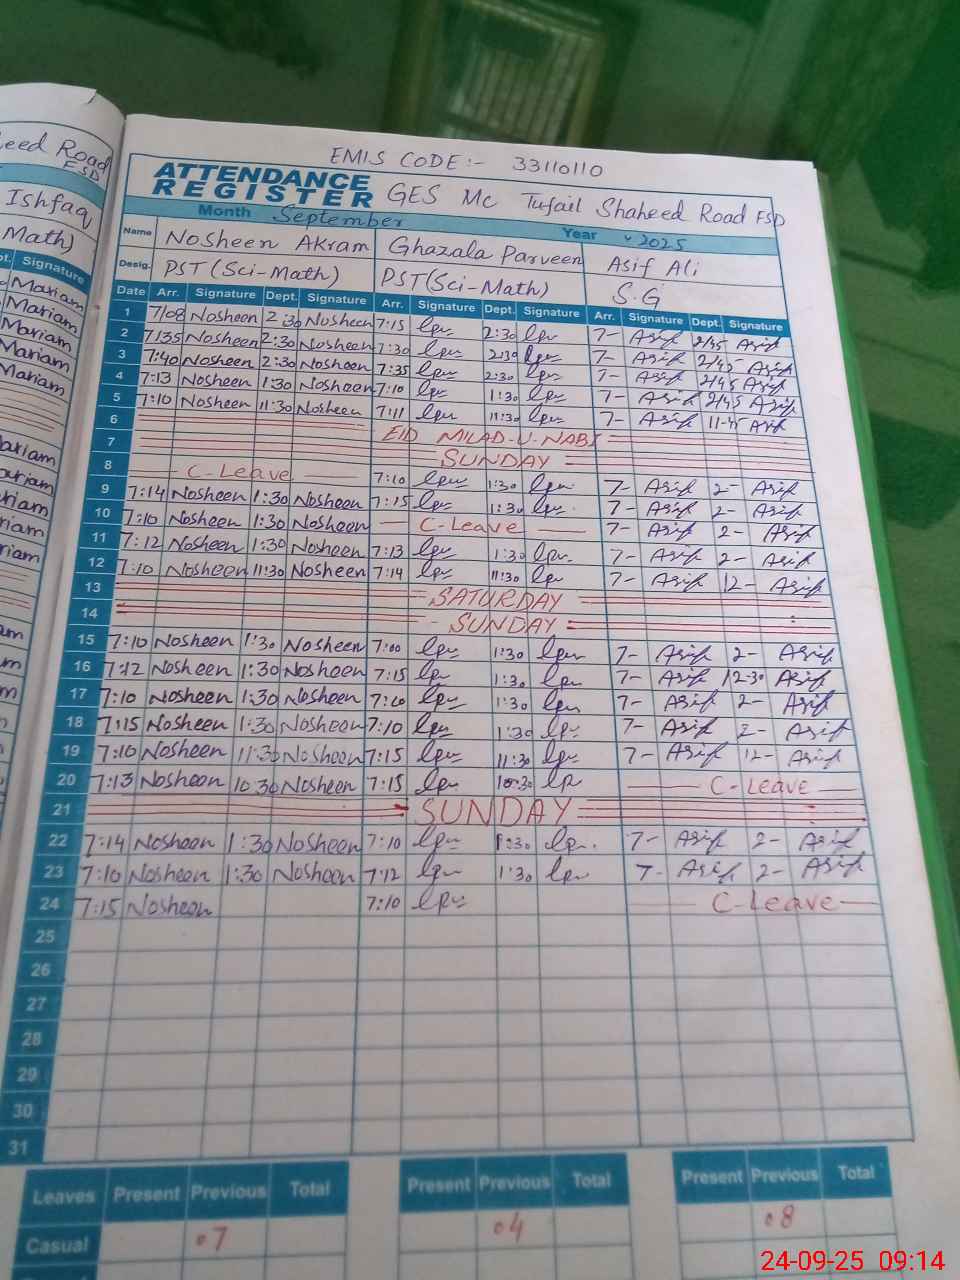 EMIS CODE:- 33110110
ATTENDANCE REGISTER GES Mc Tufail Shaheed Road FSD
Month September Year 2025
Name Nosheen Akram Ghazala Parveen Asif Ali
Desig. PST (Sci-Math) PST(Sci-Math) S.G
Date Arr. Signature Dept. Signature Arr. Signature Dept. Signature Arr. Signature Dept. Signature
1 7/08 Nosheen 2:30 Nosheen 7:15 2:30 7- Asif 2/45 Asif
2 7/35 Nosheen 2:30 Nosheen 7:30 2:30 7- Asif 2/45 Asif
3 7:40 Nosheen 2:30 Nosheen 7:35 2:30 7- Asif 2/45 Asif
4 7:13 Nosheen 1:30 Nosheen 7:10 1:30 7- Asif 2/45 Asif
5 7:10 Nosheen 11:30 Nosheen 7:11 11:30 7- Asif 11-45 Asif
6 EID MILAD-U-NABI
7 SUNDAY
8 C-Leave 7:10 1:30 7- Asif 2- Asif
9 7:14 Nosheen 1:30 Nosheen 7:15 1:30 7- Asif 2- Asif
10 7:10 Nosheen 1:30 Nosheen C-Leave 7- Asif 2- Asif
11 7:12 Nosheen 1:30 Nosheen 7:13 1:30 7- Asif 2- Asif
12 7:10 Nosheen 11:30 Nosheen 7:14 11:30 7- Asif 12- Asif
13 SATURDAY
14 SUNDAY
15 7:10 Nosheen 1:30 Nosheen 7:00 1:30 7- Asif 2- Asif
16 7:12 Nosheen 1:30 Nosheen 7:15 1:30 7- Asif 12-30 Asif
17 7:10 Nosheen 1:30 Nosheen 1:30 7- Asif 2- Asif
18 7:15 Nosheen 1:30 Nosheen 7:10 1:30 7- Asif 2- Asif
19 7:10 Nosheen 11:30 Nosheen 7:15 11:30 7- Asif 12- Asif
20 7:13 Nosheen 10:30 Nosheen 7:15 10:30 C-Leave
21 SUNDAY
22 7:14 Nosheen 1:30 Nosheen 7:10 1:30 7- Asif 2- Asif
23 7:10 Nosheen 1:30 Nosheen 7:12 1:30 7- Asif 2- Asif
24 7:15 Nosheen 7:10 C-Leave
25
26
27
28
29
30
31
Leaves Present Previous Total Present Previous Total Present Previous Total
Casual 07 04 08
Road
FSD
Ishfaq
Math)
Signature
Mariam
Mariam
Mariam
Mariam
Mariam
24-09-25 09:14